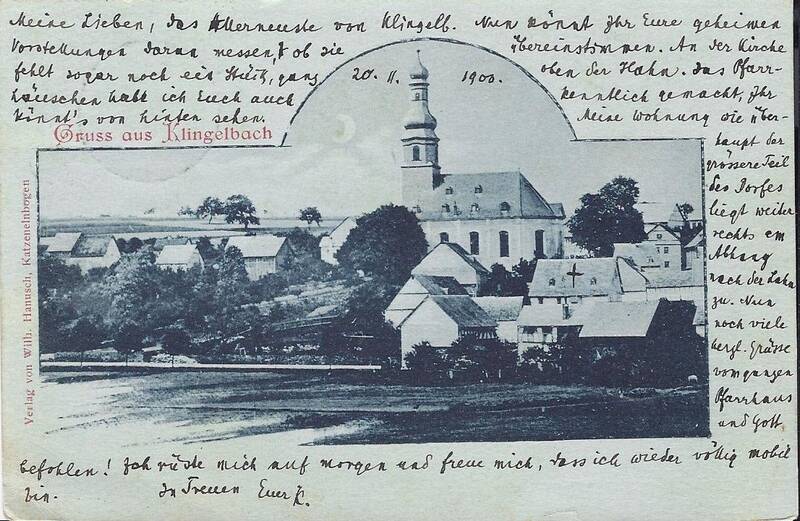 Meine Lieben, das Allerneuste von Klingelb. Nun könnt Ihr Eure geheimen
Vorstellungen daran messen, ob sie übereinstimmen. An der Kirche
fehlt sogar noch ein Stück, ganz oben der Hahn. Das Pfarr-
20. II. 1900.
häuschen habe ich Euch auch kenntlich gemacht, Ihr
könnt's von hinten sehen. Meine Wohnung wie über-
Gruss aus Klingelbach
haupt der
grössere Teil
des Dorfes
liegt weiter
rechts am
Abhang
nach der Lahn
zu. Nun
noch viele
hergl. Grüsse
vom ganzen
Pfarrhaus
und Gott
befohlen! Ich rüste mich auf morgen und freue mich, dass ich wieder völlig mobil
bin. In Treuen Euer K.
Verlag von Wilh. Hanusch, Katzenelnbogen